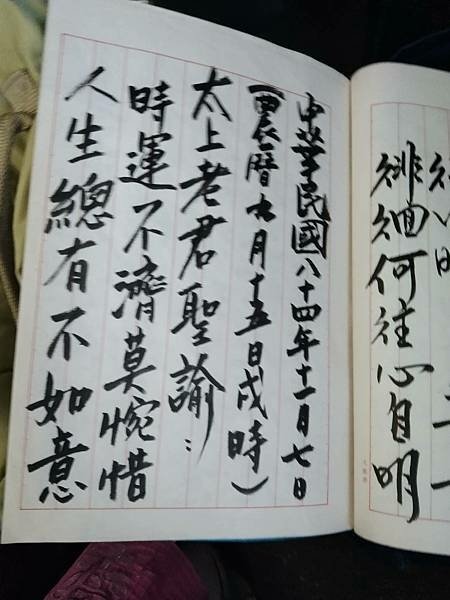 徘徊何往心自明
中華民國八十四年十一月七日
(農曆九月十五日戌時)
太上老君聖諭：
時運不濟莫惋惜
人生總有不如意